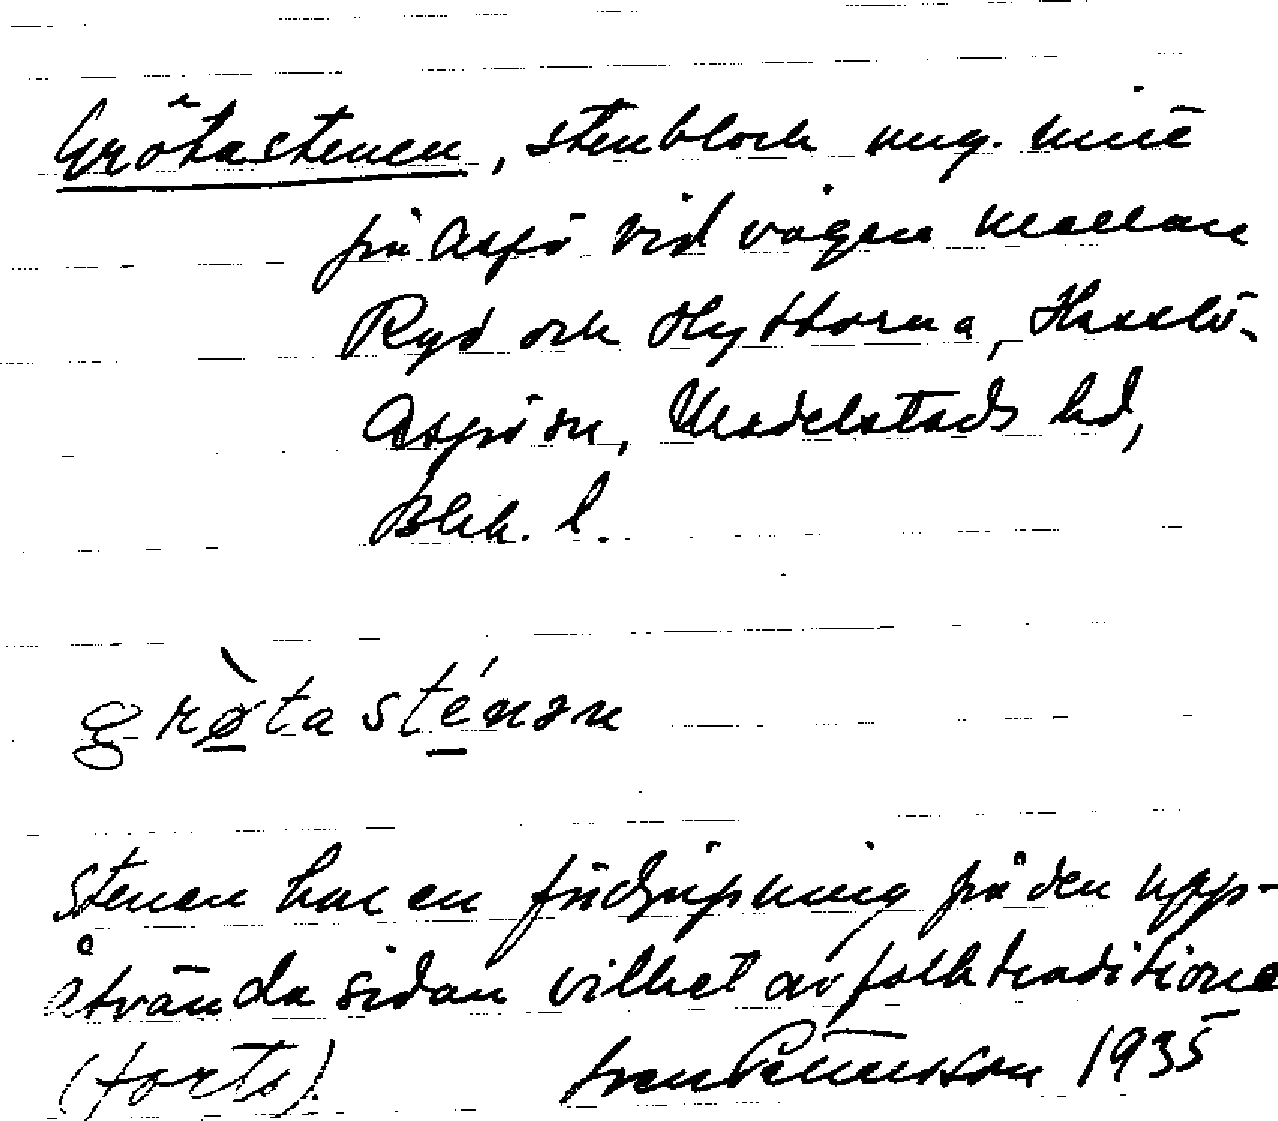 Grötastenen, stenblock ung. mitt
på Aspö vid vägen mellan
Ryd och Hyttorna, Hasslö-
Aspö sn, Medelstads hd,
Blek. l.
grø̀ta sténən
Stenen har en fördjupning på den upp-
åtvända sidan vilket av folktraditione
(forts). Sven Pettersson 1935